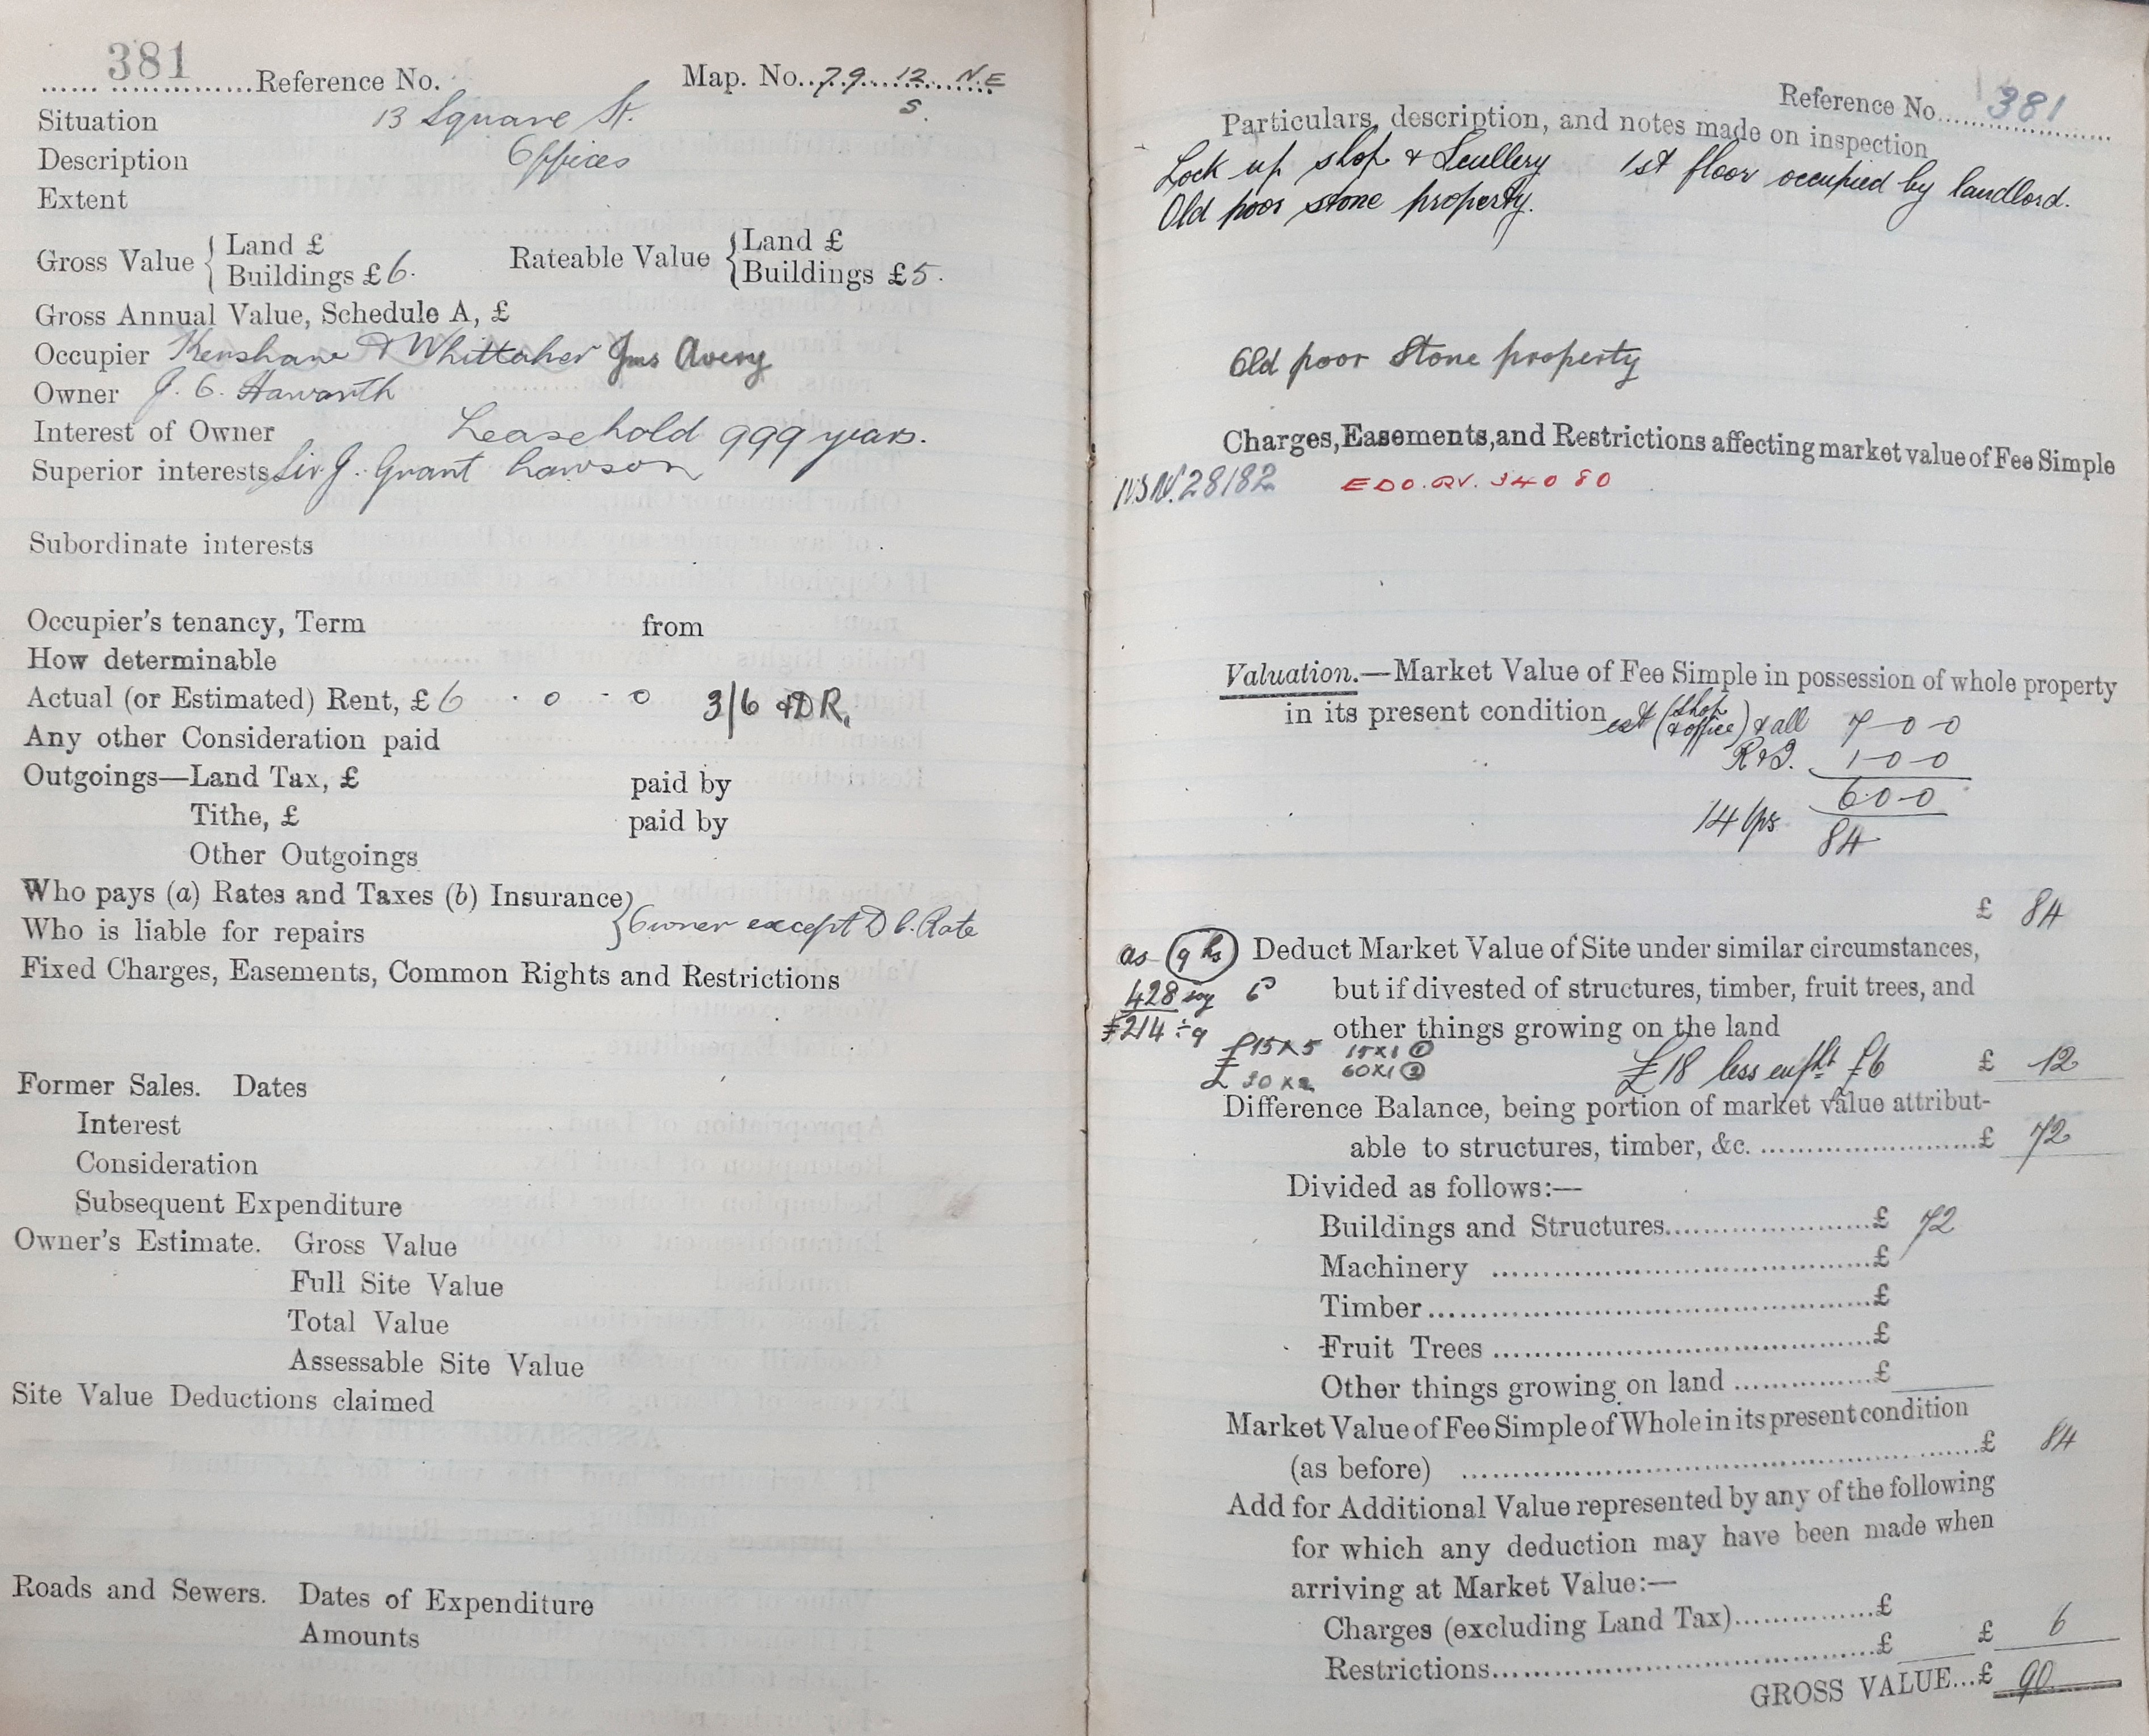 381 Reference No. Map. No. 79 12 N.E
S.
Situation 13 Square St.
Description Offices
Extent
Gross Value { Land £
Buildings £ 6. Rateable Value { Land £
Buildings £ 5.
Gross Annual Value, Schedule A, £
Occupier & Whittaker Jms Avery
Owner J. C. Haworth
Interest of Owner Leasehold 999 years.
Superior interests Sir J. Grant Lawson
Subordinate interests
Occupier's tenancy, Term from
How determinable
Actual (or Estimated) Rent, £ 6 . 0 . 0 3/6 & D R.
Any other Consideration paid
Outgoings—Land Tax, £ paid by
Tithe, £ paid by
Other Outgoings
Who pays (a) Rates and Taxes (b) Insurance }
Who is liable for repairs } Owner except D C. Rate
Fixed Charges, Easements, Common Rights and Restrictions
Former Sales. Dates
Interest
Consideration
Subsequent Expenditure
Owner's Estimate. Gross Value
Full Site Value
Total Value
Assessable Site Value
Site Value Deductions claimed
Roads and Sewers. Dates of Expenditure
Amounts
Reference No. 381
Particulars, description, and notes made on inspection
Lock up shop & Scullery 1st floor occupied by landlord.
Old poor stone property.
Old poor Stone property
Charges, Easements, and Restrictions affecting market value of Fee Simple
28182 EDO. RV. 34080
Valuation.—Market Value of Fee Simple in possession of whole property
in its present condition est (shop & office) & all 7-0-0
R&I. 1-0-0
6-0-0
14 yps 84
£ 84
as (9 hs) Deduct Market Value of Site under similar circumstances,
428 sqy 6 but if divested of structures, timber, fruit trees, and
£214 ÷ 9 other things growing on the land
£15 x 5 15 x 1 ①
£ 20 x 2 60 x 1 ② £18 less £6 £ 12
Difference Balance, being portion of market value attribut-
able to structures, timber, &c. £ 72
Divided as follows:—
Buildings and Structures £ 72
Machinery £
Timber £
Fruit Trees £
Other things growing on land £
Market Value of Fee Simple of Whole in its present condition
(as before) £ 84
Add for Additional Value represented by any of the following
for which any deduction may have been made when
arriving at Market Value:—
Charges (excluding Land Tax) £
Restrictions £ £ 6
GROSS VALUE...£ 90